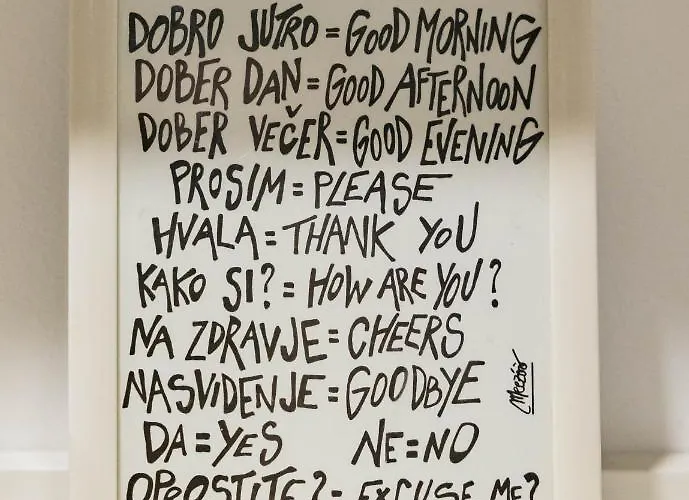 DOBRO JUTRO = GOOD MORNING
DOBER DAN = GOOD AFTERNOON
DOBER VEČER = GOOD EVENING
PROSIM = PLEASE
HVALA = THANK YOU
KAKO SI? = HOW ARE YOU?
NA ZDRAVJE = CHEERS
NASVIDENJE = GOODBYE
DA = YES NE = NO
OPROSTITE? = EXCUSE ME?